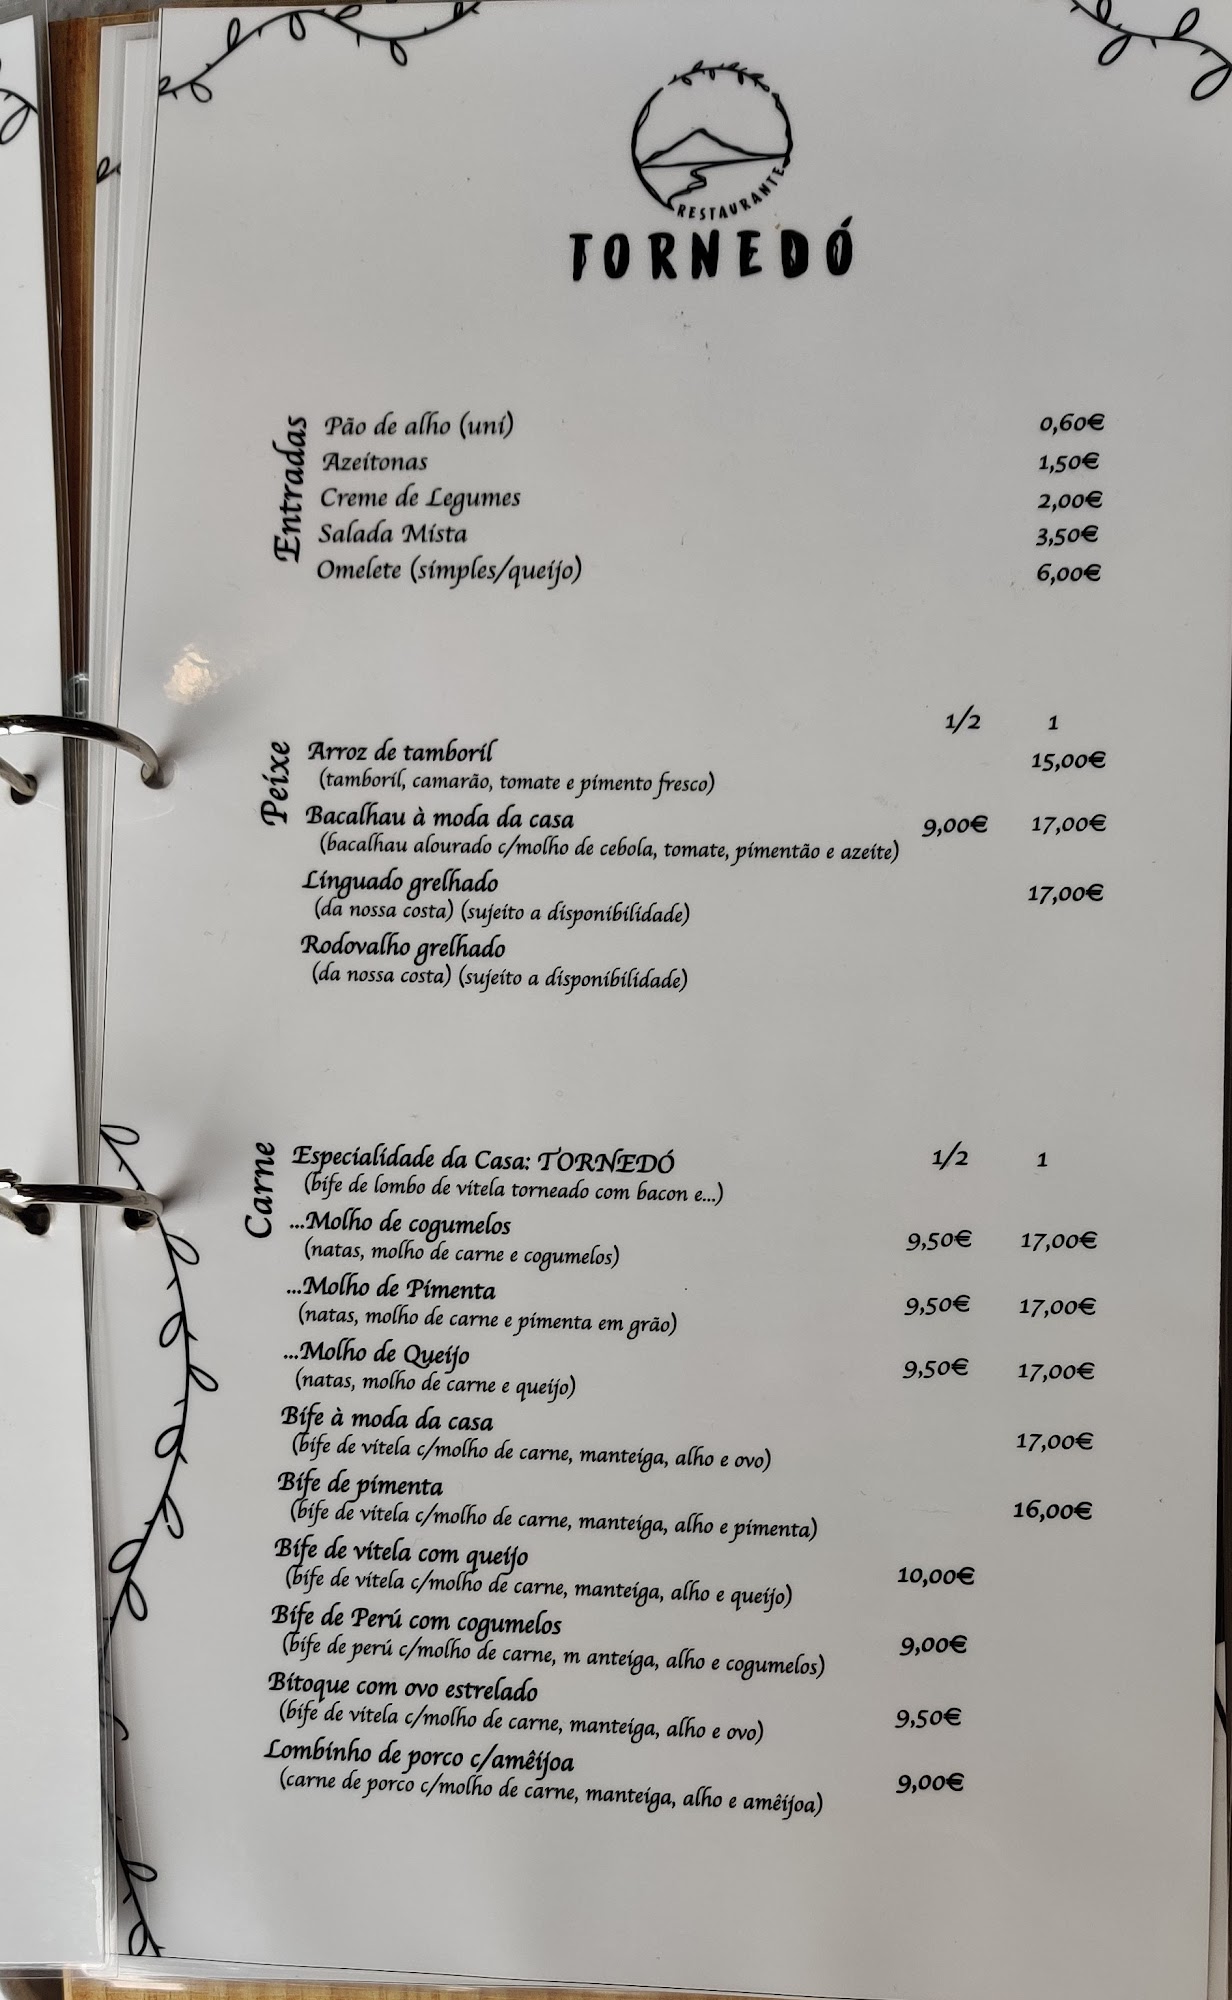 RESTAURANTE
TORNEDÓ
Entradas
Pão de alho (uni) 0,60€
Azeitonas 1,50€
Creme de Legumes 2,00€
Salada Mista 3,50€
Omelete (simples/queijo) 6,00€
Peixe
1/2 1
Arroz de tamboril 15,00€
(tamboril, camarão, tomate e pimento fresco)
Bacalhau à moda da casa 9,00€ 17,00€
(bacalhau alourado c/molho de cebola, tomate, pimentão e azeite)
Linguado grelhado 17,00€
(da nossa costa) (sujeito a disponibilidade)
Rodovalho grelhado
(da nossa costa) (sujeito a disponibilidade)
Carne
Especialidade da Casa: TORNEDÓ 1/2 1
(bife de lombo de vitela torneado com bacon e...)
...Molho de cogumelos 9,50€ 17,00€
(natas, molho de carne e cogumelos)
...Molho de Pimenta 9,50€ 17,00€
(natas, molho de carne e pimenta em grão)
...Molho de Queijo 9,50€ 17,00€
(natas, molho de carne e queijo)
Bife à moda da casa 17,00€
(bife de vitela c/molho de carne, manteiga, alho e ovo)
Bife de pimenta 16,00€
(bife de vitela c/molho de carne, manteiga, alho e pimenta)
Bife de vitela com queijo 10,00€
(bife de vitela c/molho de carne, manteiga, alho e queijo)
Bife de Perú com cogumelos 9,00€
(bife de perú c/molho de carne, m anteiga, alho e cogumelos)
Bitoque com ovo estrelado 9,50€
(bife de vitela c/molho de carne, manteiga, alho e ovo)
Lombinho de porco c/amêijoa 9,00€
(carne de porco c/molho de carne, manteiga, alho e amêijoa)